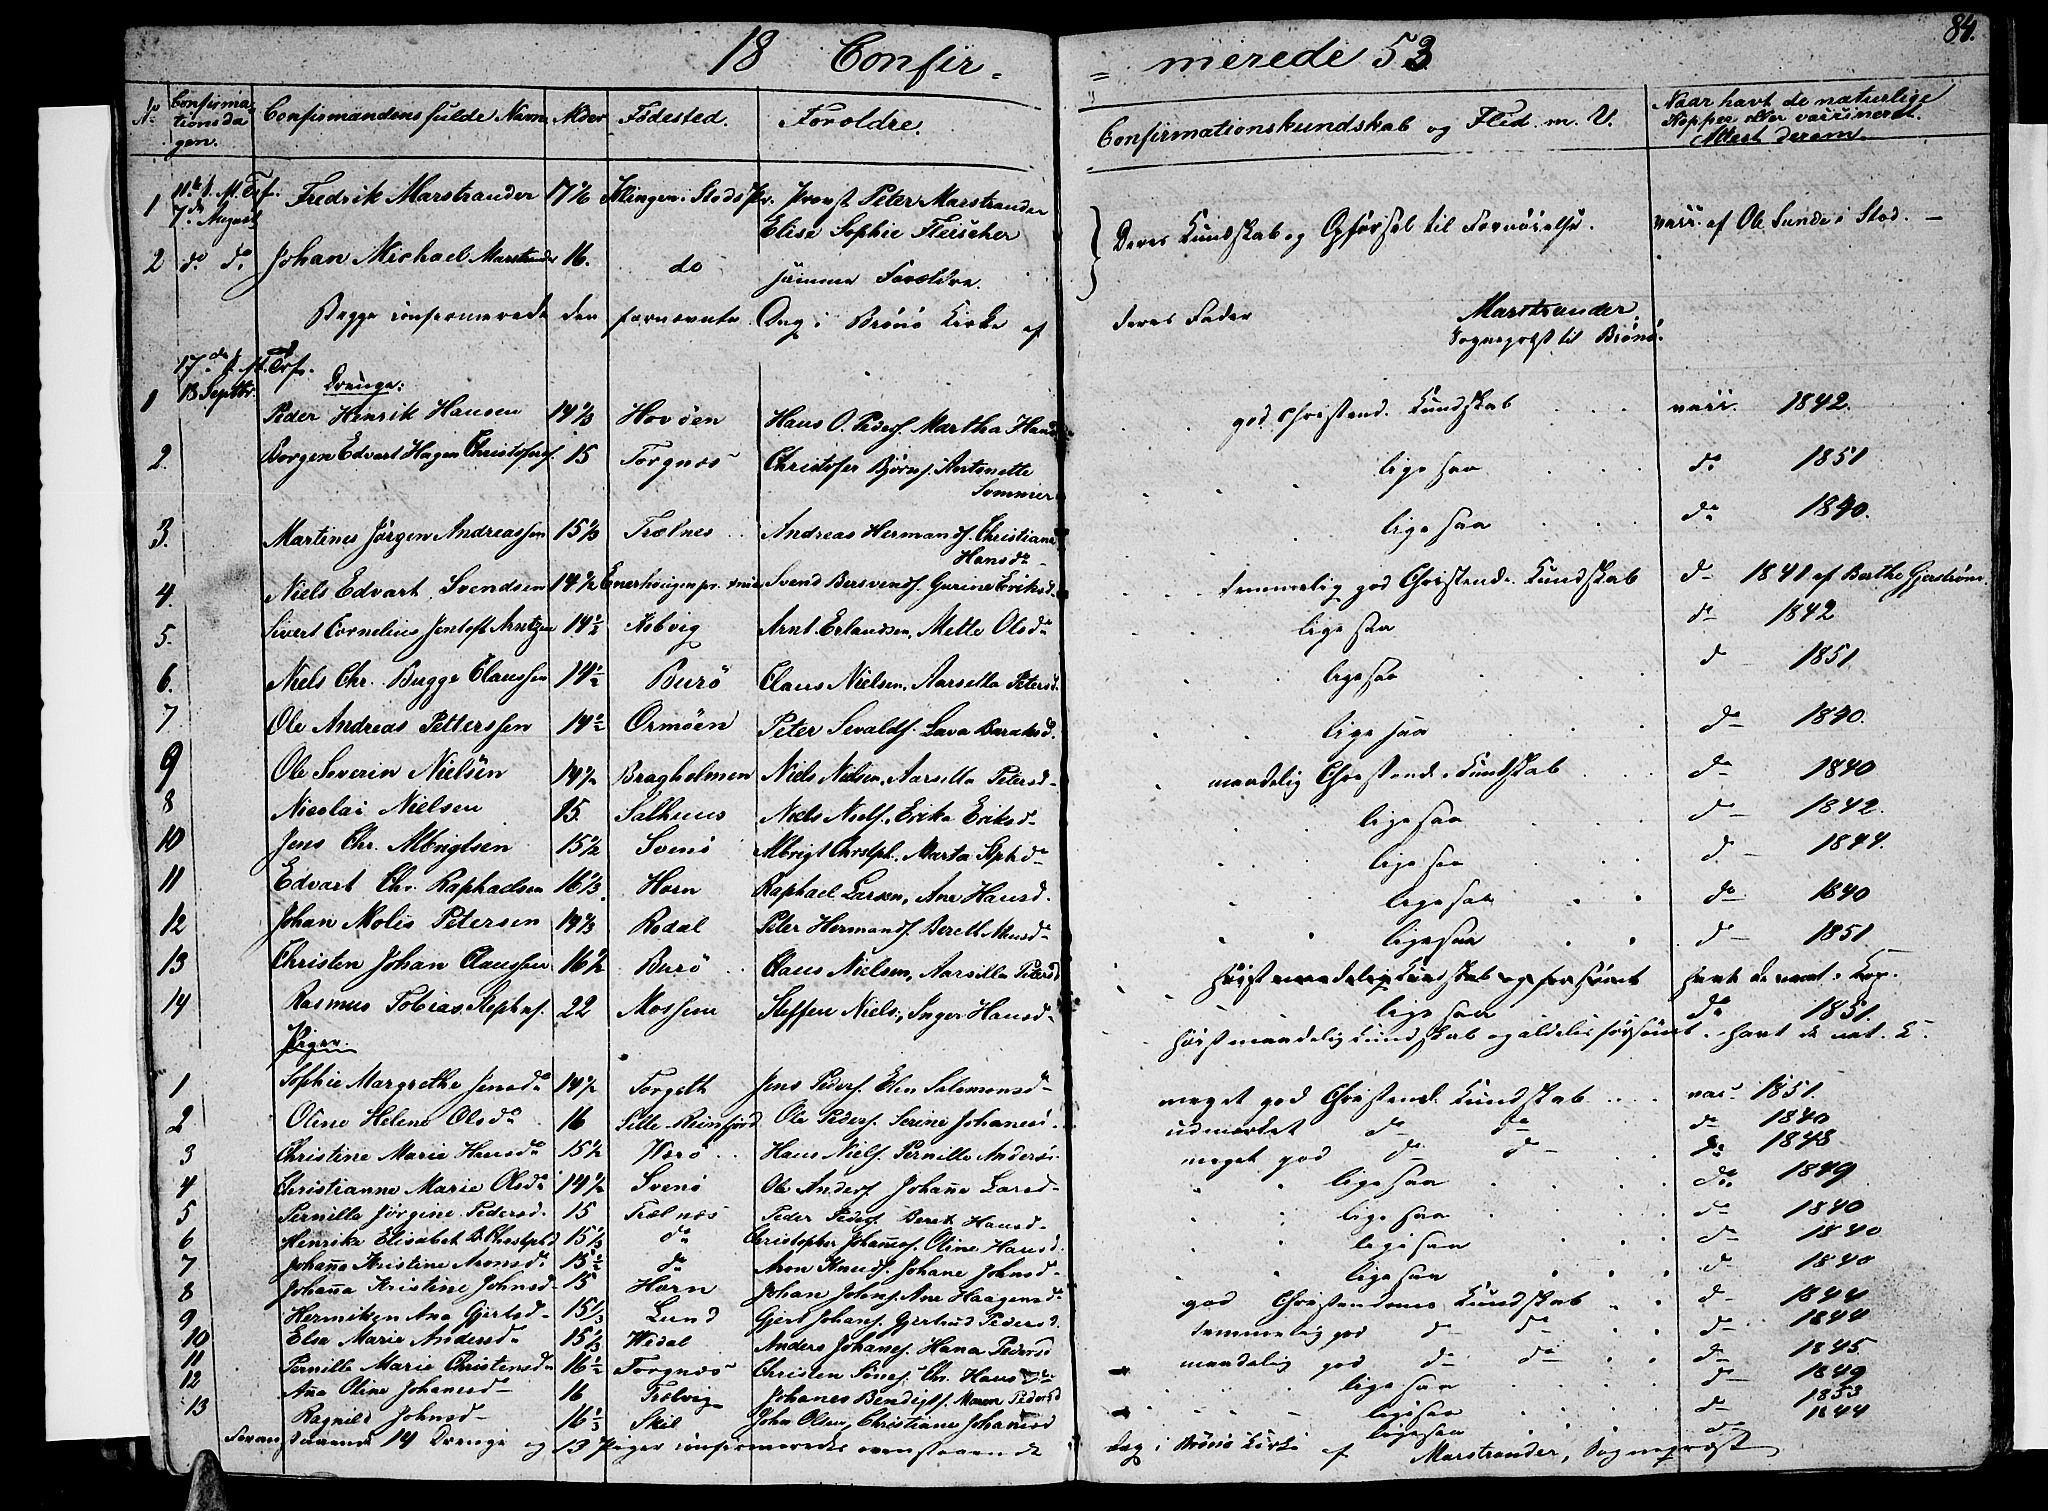 84.
18 Confir- = merede 53
No Confirmationsdagen. Confirmandens fulde Navn Alder Födested. Forældre. Confirmationskundskab og Flid m. V. Naar havt de naturlige Kopper eller vaccineret. Attest derom
1 7de August Fredrik Marstrander 17 1/2 Stods Pr. Provst Peter Marstrander
Elise Sophie Fleischer Deres Kundskab og Opførsel til Fornöielse. vacc. af Ole Sunde i Stod. -
2 do do Johan Michael Marstrander 16. do samme Forældre.
Begge confirmerede den fornævnte Dag i Brönö Kirke af deres Fader Marstrander
Sogneprest til Brönö.
17de S. e. Tref.
1 18 Septbr. Drenge:
Peder Henrik Hansen 14 1/3 Hovöen Hans O. Peders. Martha Hansd god Christend. Kundskab vacc. 1842.
2. Borgen Edvart Hagen Christofers. 15 Torgnes Christofer Björns. Antonette
Sommer ligesaa do 1851
3. Martines Jörgen Andreassen 15 1/3 Trælnes Andreas Hermands. Christiane
Hansda ligesaa do 1840.
4. Niels Edvart Svendsen 14 1/2 Svend Bersvends. Gurine Eriksd. temmelig god Christend. Kundskab do 1841 af Berthe Gjerström
5. Sivert Cornelius Jentoft Arntzen 14 1/2 Kobvig Arnt Erlandsen, Mette Olsda ligesaa do 1842
6. Niels Chr. Bugge Claussen 14 1/2 Burö Claus Nielsen, Aarsella Petersd. ligesaa d 1851
7 Ole Andreas Petterssen 14 1/2 Ormöen Peter Sevalds. Lava Baraksd. ligesaa do 1840.
9 Ole Severin Nielsen 14 1/2 Bragholmen Niels Nielsen, Aarsella Petersd- maadelig Christend. Kundskab do 1840
8 Nicolai Nielsen 15. Salhuus Niels Niels. Erika Eriksd- ligesaa do 1842.
10 Jens Chr. Albrigtsen 15 1/2 Svenö Albrigt Chrstph. Marta Stphda ligesaa d. 1844.
11 Edvart Chr. Raphaelsen 16 1/3 Horn Raphael Larsen, Ane Hansd. ligesaa do 1840
12 Johan Molis Petersen 14 1/3 Rodal Peter Hermands. Berett ligesaa d 1851
13 Christen Johan Claussen 16 1/2 Burö Claus Nielsen, Aarsilla Petersd höist maadelig Kundskab og forsömt havt de nat. Kop.
14 Rasmus Tobias Stephns. 22 Mossem Steffen Niels., Inger Hansd- ligesaa do 1851.
Piger. höist maadelig Kundskab og aldeles forsömt. havt de nat. K.
1 Sophie Margrethe Jensda 14 1/2 Torgeth Jens Peders. Elen Salamonsd- meget god Christend. Kundskab vac. 1851.
2 Oline Helene Olsda 16 Lille Reinfjord Ole Peders. Serine Johanesd. udmærket do do do 1840
3 Christine Marie Hansda 15 1/2 Værö Hans Niels. Pernille Andersd. meget god do do do 1848
4 Christianne Marie Olsda 14 1/2 Svenö Ole Anders. Johane Larsd- ligesaa do 1849
5 Pernilla Jörgine Pedersd. 15 Trælnes Peder Peders. Beret Hansd- ligesaa do 1840
6 Henrike Elisabet B. Chrstphd 15 1/3 do Christopher Johanes. Oline Hansd. ligesaa do 1840
7 Johana Kristine Aronsda 15 1/2 do Aron Knuds. Johane Johnsd- ligesaa d 1840
8 Johana Kristine Johnsd- 15 Horn Johan Johns. Ane Haagensda god Christendoms Kundskab d- 1844
9 Hermiken Ana Gjertsd- 15 1/3 Lund Gjert Johans. Gjertrud Pedersd. temmelig god do do d- 1844
10 Else Marie Andersda 15 1/3 Vedal Anders Johanes. Hana Pedersd maadelig god do do d- 1845
11 Pernille Marie Christensda 16 1/2 Torgnes Christen Chr. Hans ligesaa d- 1849
12 Ana Oline Johansd- 16 Trælvig Johanes Bendigts. Maren Pedersd ligesaa d- 1853
13 Ragnild Johnsd- 16 1/3 Skil John Olsen, Christiane Johanesd ligesaa d- 1844
14 Drenge og 13 Piger confirmeredes ovenstaaende Dag i Brönö Kirke af Marstrander, Sogneprest